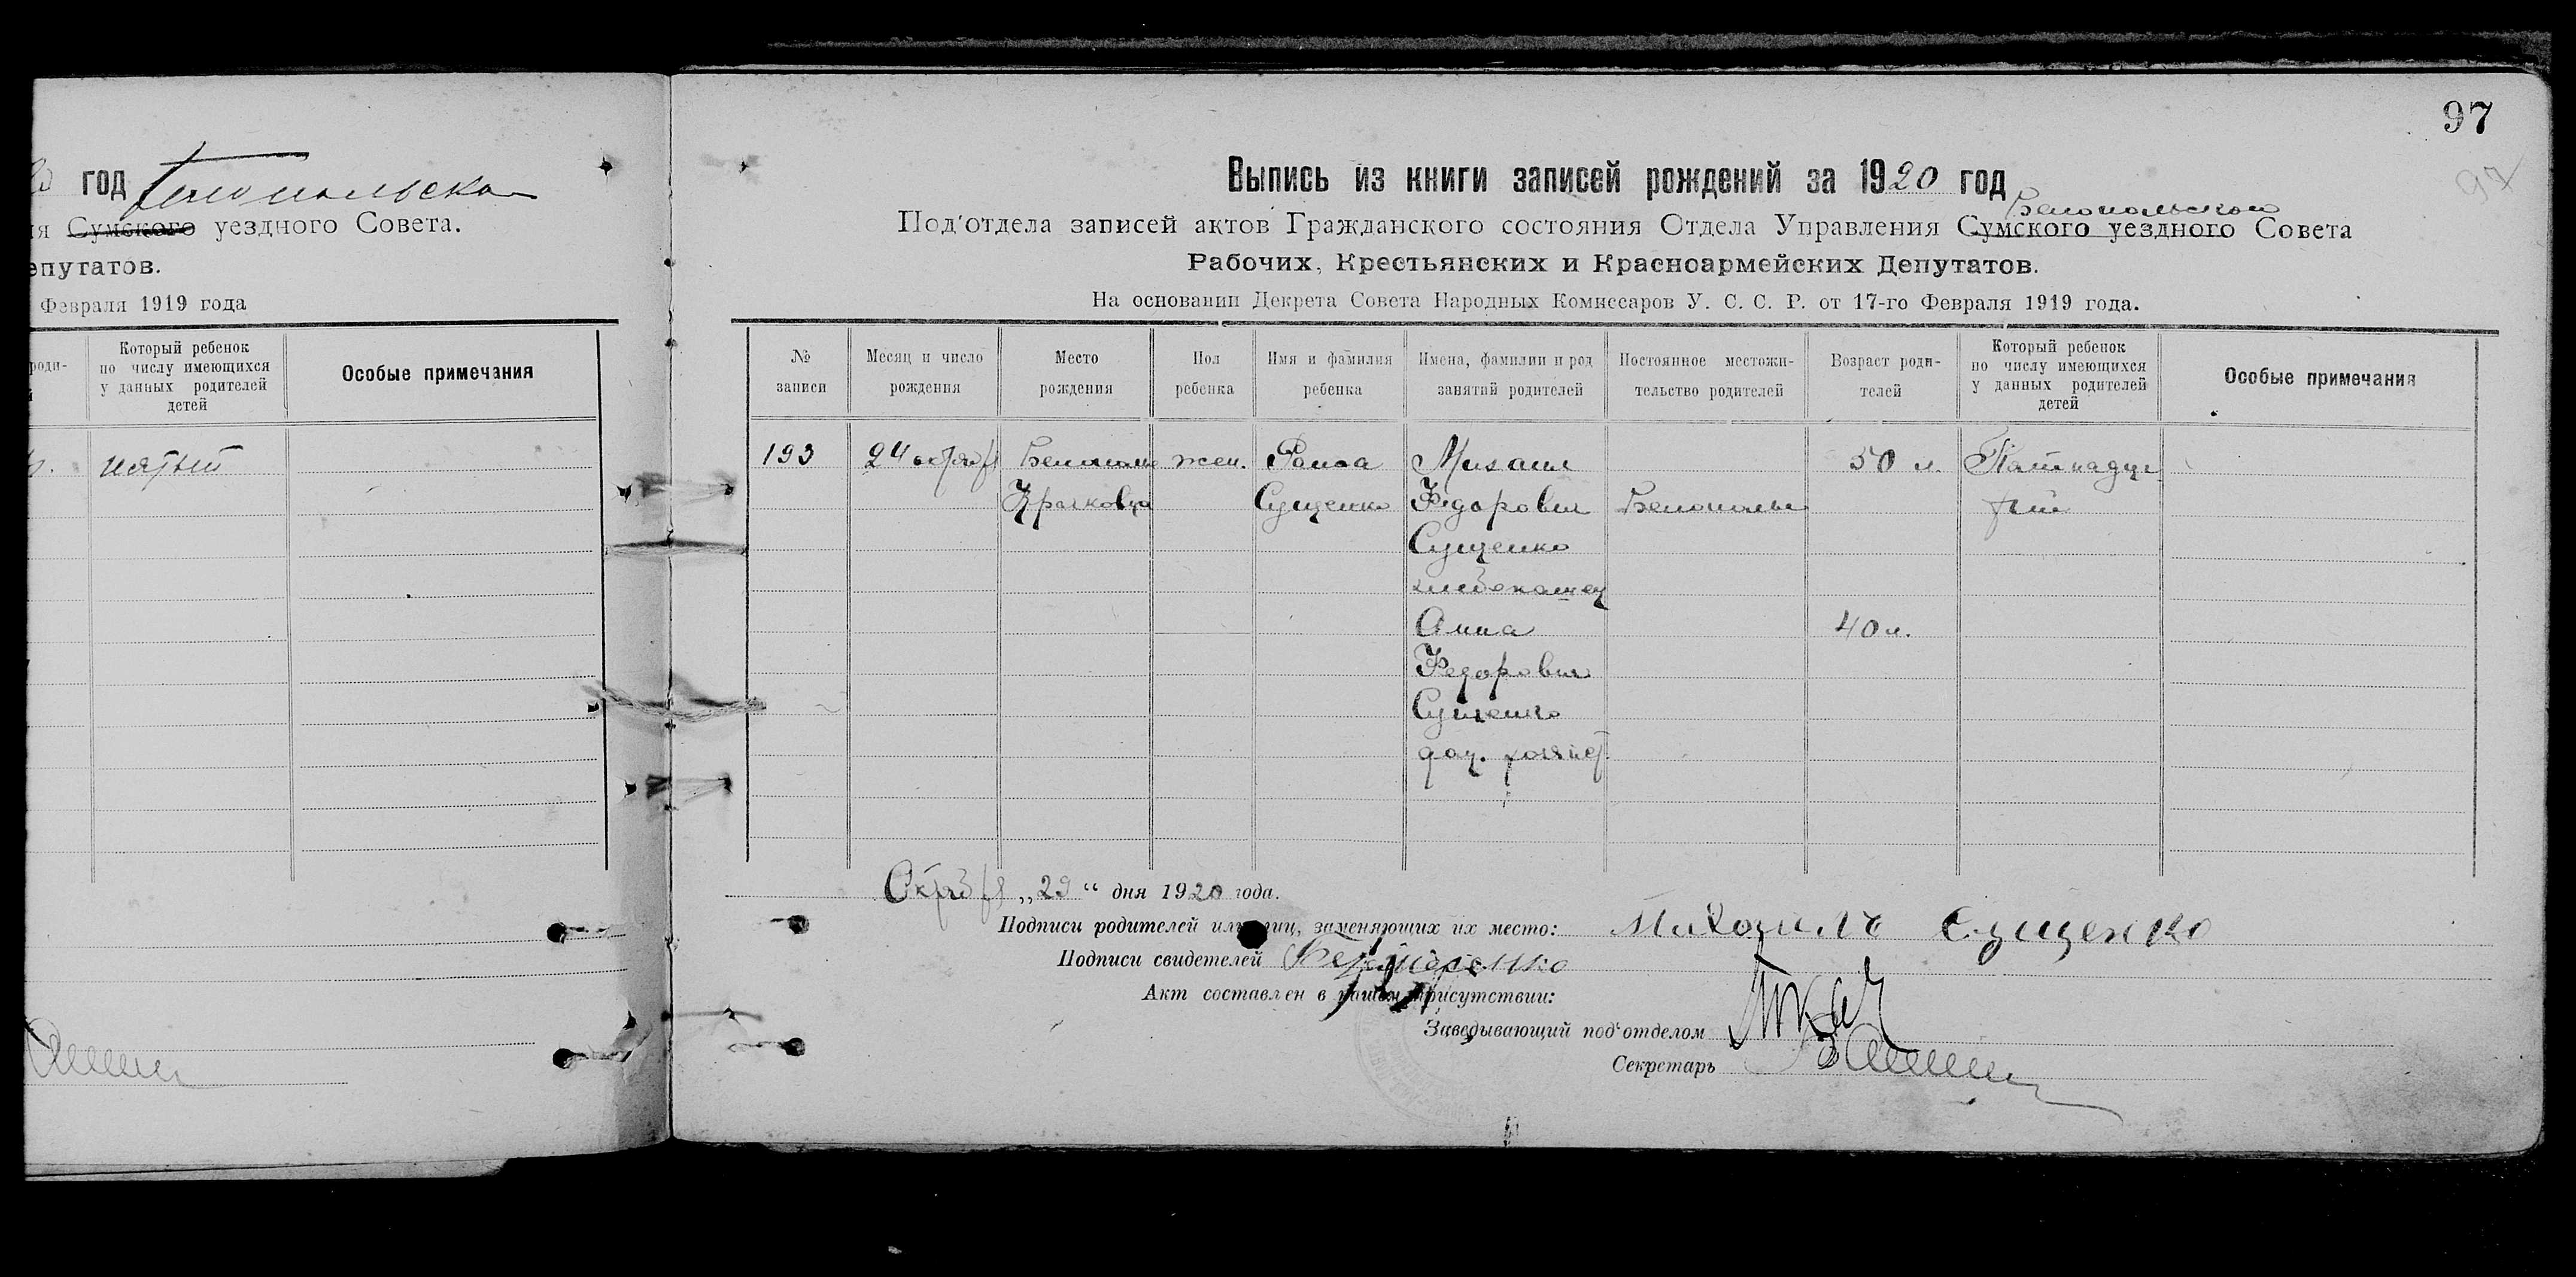 год Белопольска
ия Сумского уездного Совета.
епутатов.
Февраля 1919 года
роди-
й
Который ребенок
по числу имеющихся
у данных родителей
детей
Особые примечания
пятый
97
97
Выпись из книги записей рождений за 1920 год
Белопольского
Под'отдела записей актов Гражданского состояния Отдела Управления Сумского уездного Совета
Рабочих, Крестьянских и Красноармейских Депутатов.
На основании Декрета Совета Народных Комиссаров У. С. С. Р. от 17-го Февраля 1919 года.
№
записи
Месяц и число
рождения
Место
рождения
Пол
ребенка
Имя и фамилия
ребенка
Имена, фамилии и род
занятий родителей
Постоянное местожи-
тельство родителей
Возраст роди-
телей
Который ребенок
по числу имеющихся
у данных родителей
детей
Особые примечания
193
24 октября
Белополье
жен.
Раиса
Сущенко
Михаил
Федорович
Сущенко
хлебопашец
Анна
Федоровна
Сущенко
дом. хозяйст.
Белополье
50 л.
40 л.
Пятнадца
тый
Октября „29“ дня 1920 года.
Подписи родителей или лиц, заменяющих их место: Михаилъ Сущенко
Подписи свидетелей
Акт составлен в нашем присутствии:
Заведывающий под'отделом Ткач
Секретарь